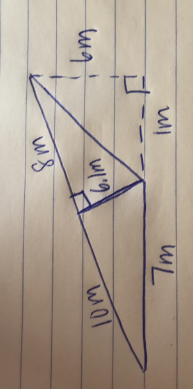 9m
1m
8m
6.1m
7m
10m